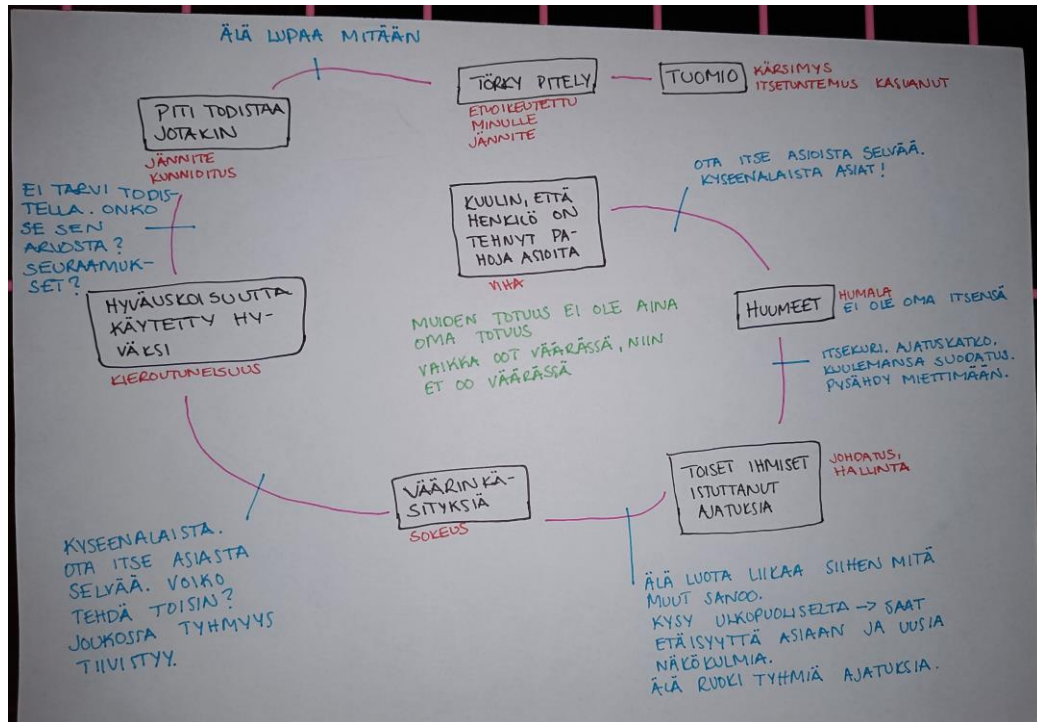 ÄLÄ LUPAA MITÄÄN
PITI TODISTAA
JOTAKIN
JÄNNITE
KUNNIOITUS
TÖRKY PITELY
ETUOIKEUTETTU
MINULLE
JÄNNITE
TUOMIO
KÄRSIMYS
ITSETUNTEMUS KASVANUT
EI TARVI TODIS-
TELLA. ONKO
SE SEN
ARVOSTA?
SEURAAMUK-
SET?
KUULIN, ETTÄ
HENKILÖ ON
TEHNYT PA-
HOJA ASIOITA
VIHA
OTA ITSE ASIOISTA SELVÄÄ.
KYSEENALAISTA ASIAT!
HYVÄUSKOISUUTTA
KÄYTETTY HY-
VÄKSI
KIEROUTUNEISUUS
MUIDEN TOTUUS EI OLE AINA
OMA TOTUUS
VAIKKA OOT VÄÄRÄSSÄ, NIIN
ET OO VÄÄRÄSSÄ
HUUMEET
HUMALA
EI OLE OMA ITSENSÄ
ITSEKURI. AJATUSKATKO.
KUULEMANSA SUODATUS.
PYSÄHDY MIETTIMÄÄN.
VÄÄRINKÄ-
SITYKSIÄ
SOKEUS
TOISET IHMISET
ISTUTTANUT
AJATUKSIA
JOHDATUS,
HALLINTA
KYSEENALAISTA.
OTA ITSE ASIASTA
SELVÄÄ. VOIKO
TEHDÄ TOISIN?
JOUKOSSA TYHMYYS
TIIVISTYY.
ÄLÄ LUOTA LIIKAA SIIHEN MITÄ
MUUT SANOO.
KYSY ULKOPUOLISELTA -> SAAT
ETÄISYYTTÄ ASIAAN JA UUSIA
NÄKÖKULMIA.
ÄLÄ RUOKI TYHMIÄ AJATUKSIA.